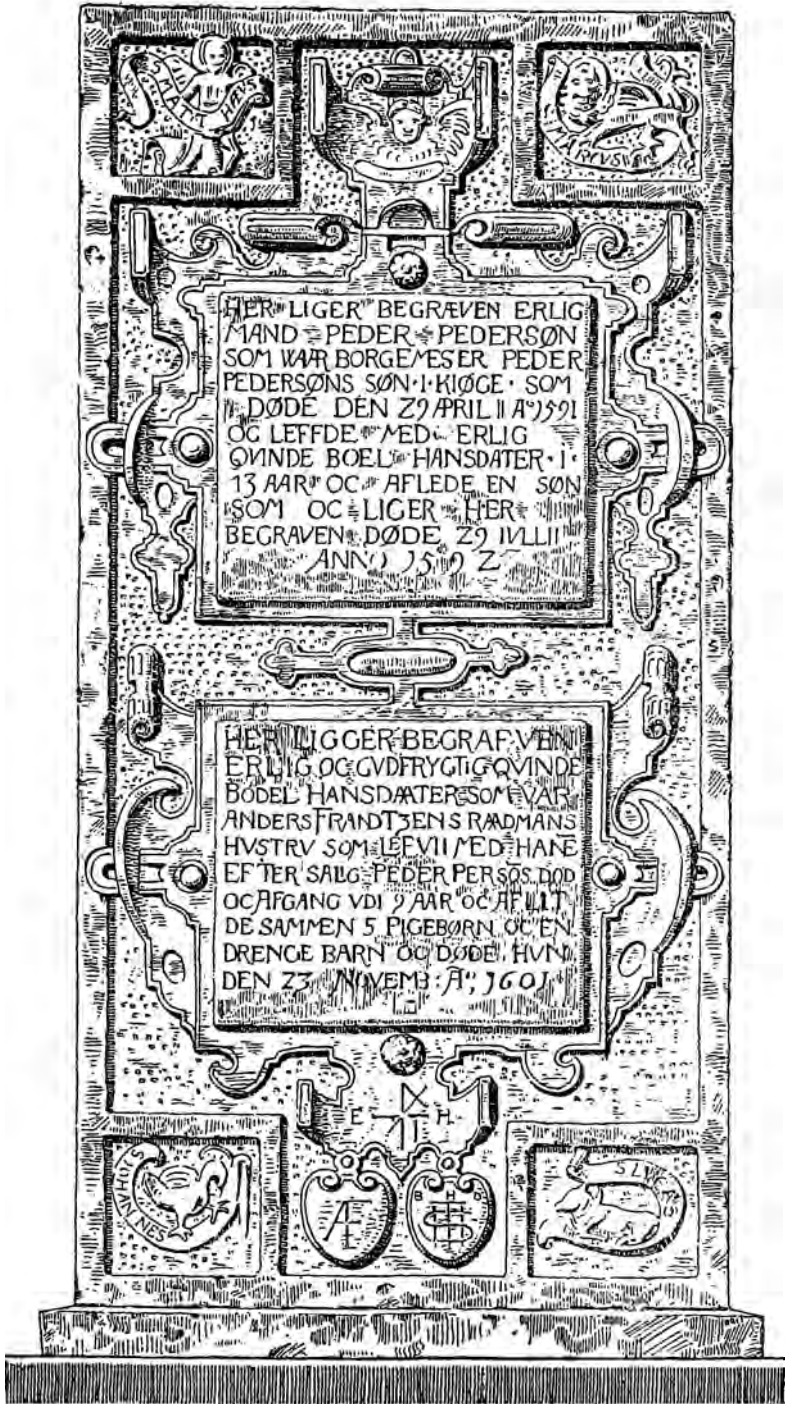 S MATTHÆVS
S MARCVS
HER LIGER BEGRÆVEN ERLIG
MAND PEDER PEDERSØN
SOM WAAR BORGEMESER PEDER
PEDERSØNS SØN · I · KIØGE · SOM
DØDE DEN 29 APRIL II A° 1591
OG LEFFDE MED ERLIG
QVINDE BOEL HANSDATER · I ·
13 AAR OC AFLEDE EN SØN
SOM OC LIGER HER
BEGRAVEN DØDE 29 IVLLII
ANNO 1592
HER LIGGER BEGRAFVEN
ERLIG OC GVDFRYGTIG QVINDE
BODEL HANSDAATER SOM VAR
ANDERS FRANDTZENS RAADMANS
HVSTRV SOM LEFVII MED HANE
EFTER SALIG PEDER PERSØS DØD
OC AFGANG VDI 9 AAR OC AFLIT
DE SAMMEN 5 PIGEBØRN OC EN
DRENGE BARN OC DØDE HVN
DEN 23 NOVEMB : A°, 1601
E H
S IOHANNES
AF
B H D
S LVCAS